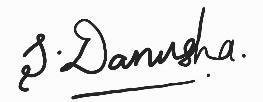 S. Danusha.